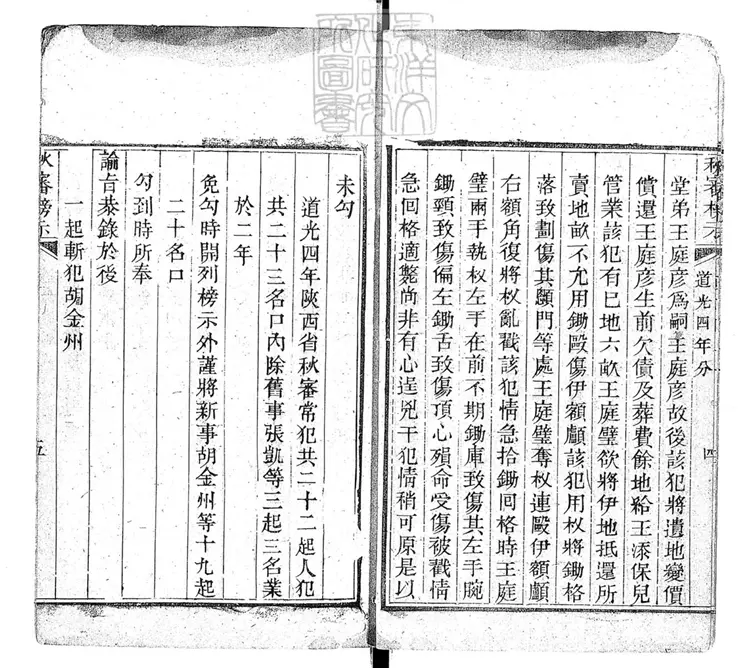 秋審榜示
道光四年分
四
堂弟王庭彥爲嗣王庭彥故後該犯將遺地變價
償還王庭彥生前欠債及葬費餘地給王添保兒
管業該犯有已地六畝王庭璧欲將伊地抵還所
賣地畝不允用鋤毆傷伊額顱該犯用杈將鋤格
落致劃傷其顖門等處王庭璧奪杈連毆伊額顱
右額角復將杈亂戳該犯情急拾鋤囘格時王庭
璧兩手執杈左手在前不期鋤庫致傷其左手腕
鋤頸致傷偏左鋤舌致傷頂心殞命受傷被戳情
急囘格適斃尚非有心逞兇干犯情稍可原是以
未勾
道光四年陝西省秋審常犯共二十二起人犯
共二十三名口內除舊事張凱等三起三名業
於二年
免勾時開列榜示外謹將新事胡金州等十九起
二十名口
勾到時所奉
諭旨恭錄於後
一起斬犯胡金州
秋審榜示
五
東洋文化研究所圖書